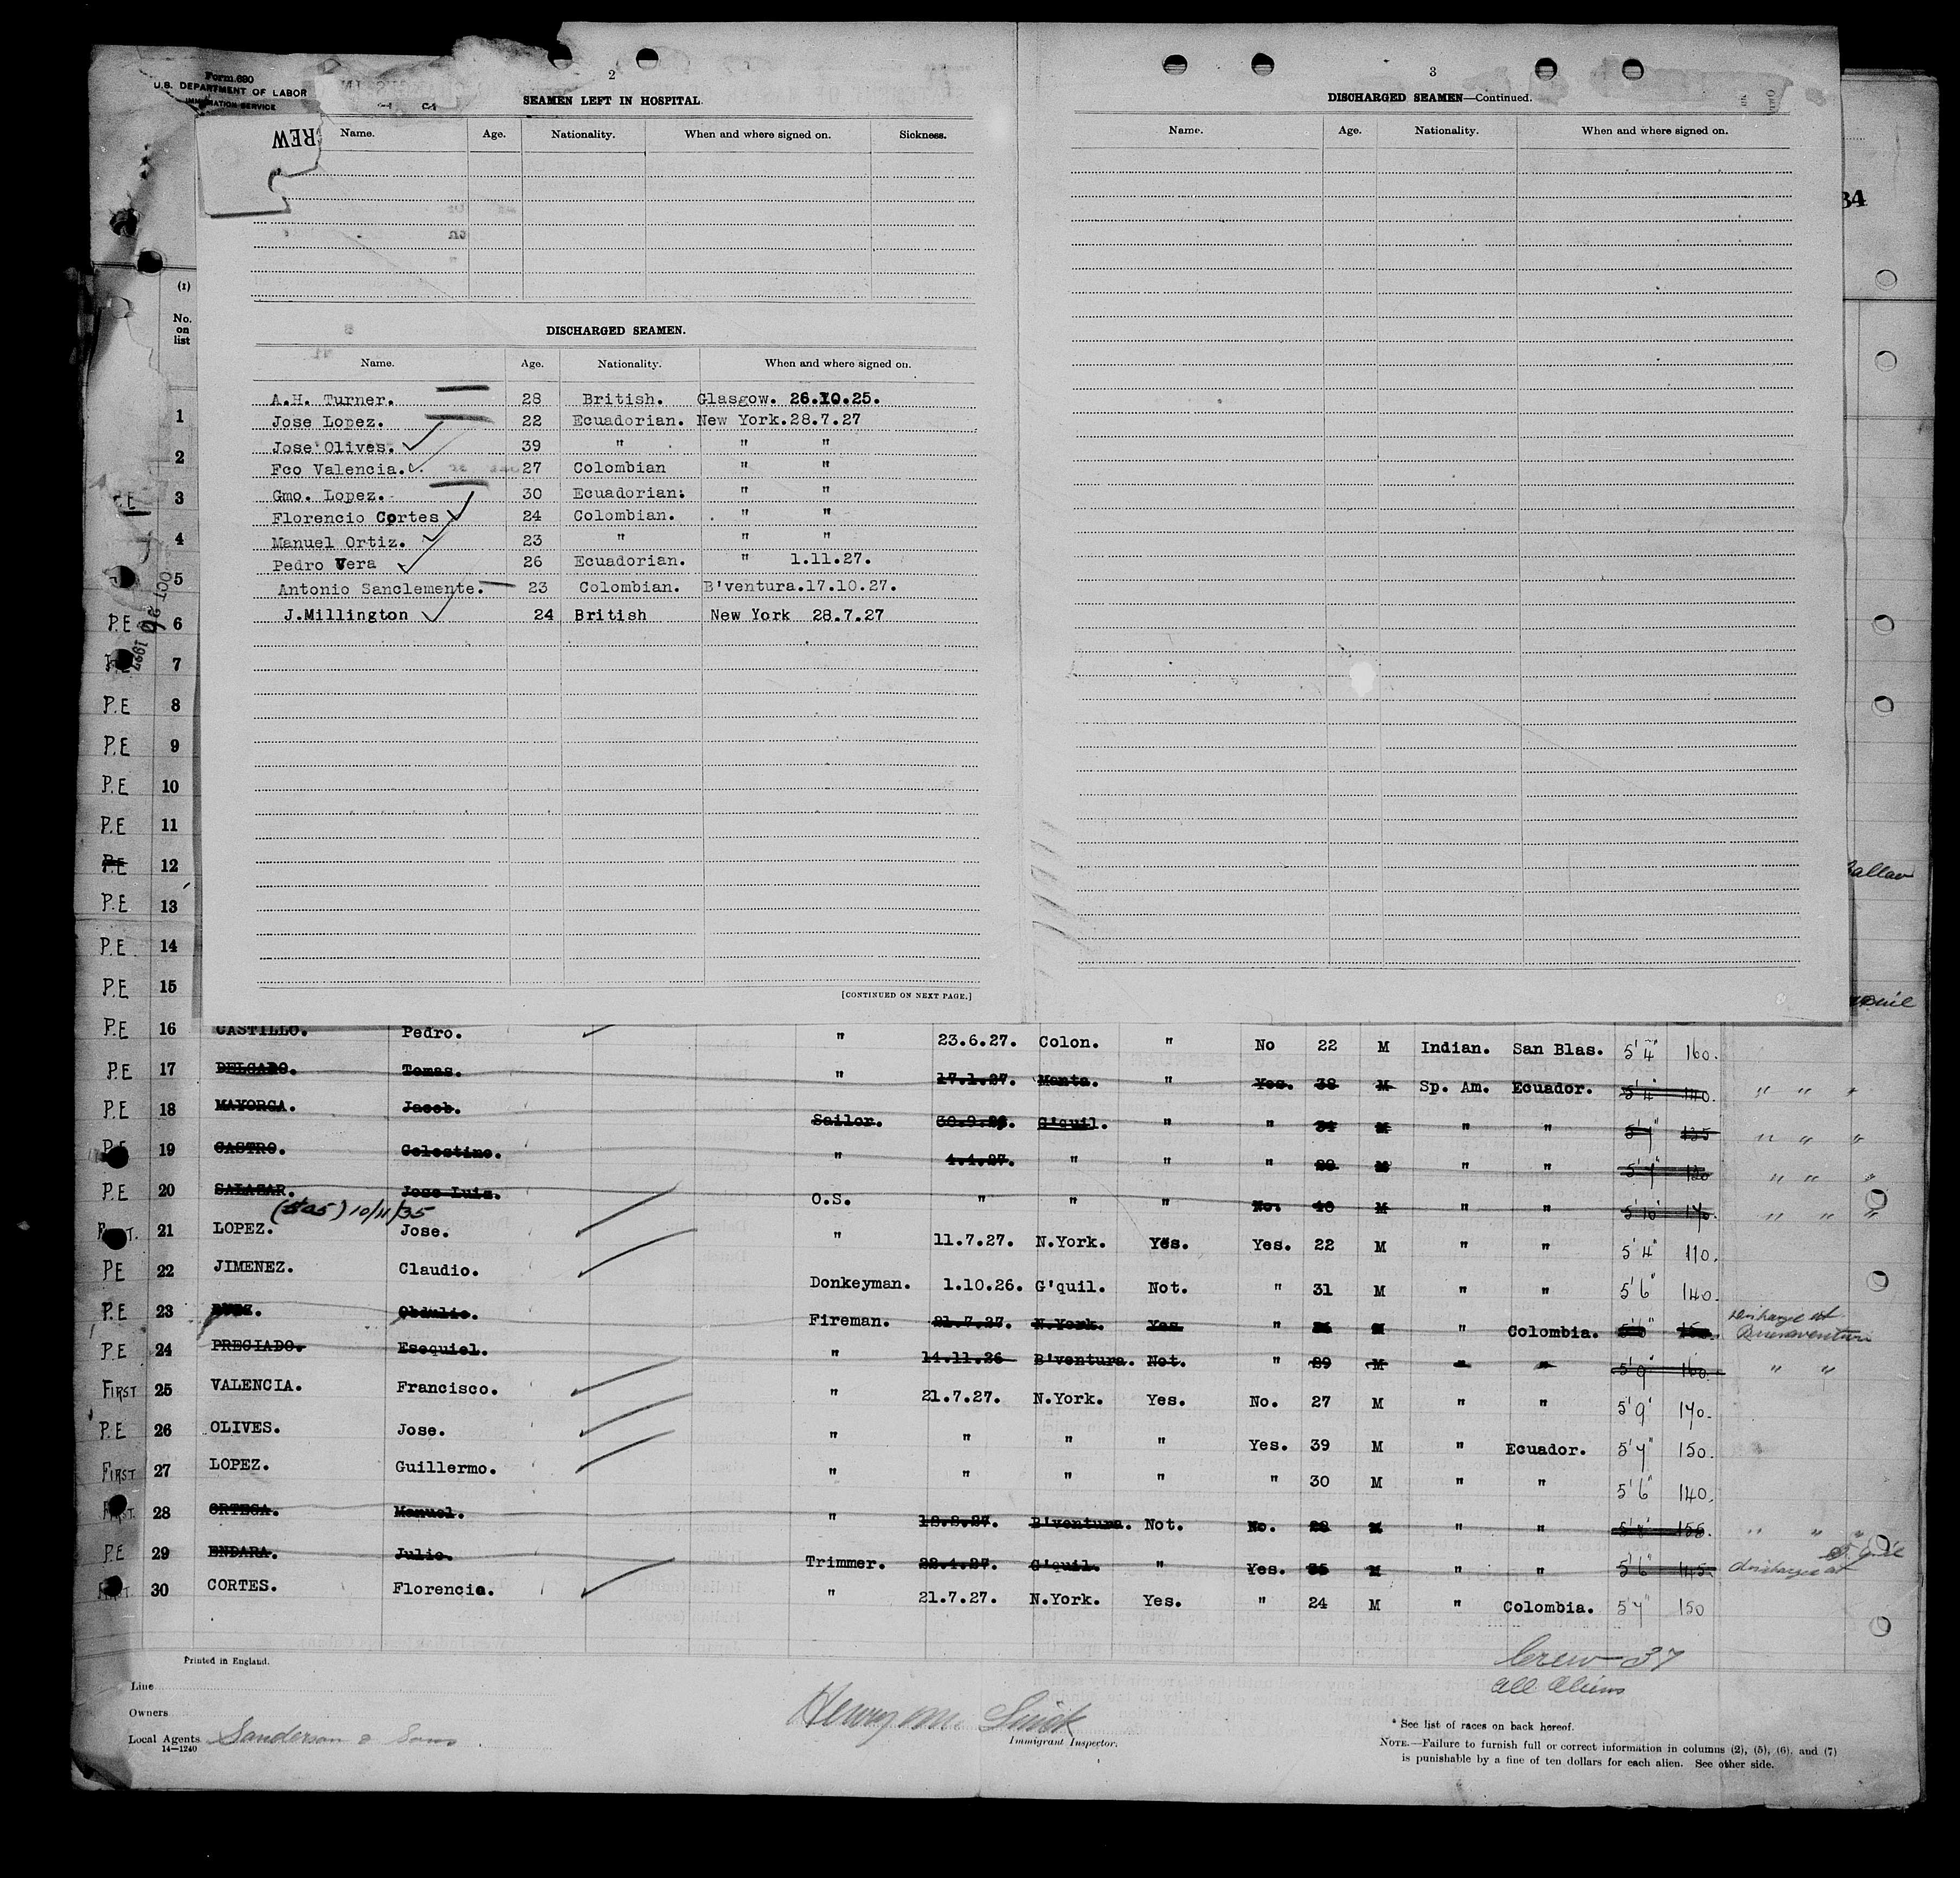 Form 690
U.S. DEPARTMENT OF LABOR
IMMIGRATION SERVICE
CREW
2
SEAMEN LEFT IN HOSPITAL.
Name. Age. Nationality. When and where signed on. Sickness.
DISCHARGED SEAMEN.
Name. Age. Nationality. When and where signed on.
A.H. Turner. 28 British. Glasgow. 26.10.25.
Jose Lopez. 22 Ecuadorian. New York. 28.7.27
Jose Olives. 39 " " "
Fco Valencia. 27 Colombian " "
Gmo. Lopez. 30 Ecuadorian. " "
Florencio Cortes 24 Colombian. " "
Manuel Ortiz. 23 " " "
Pedro Vera 26 Ecuadorian. " 1.11.27.
Antonio Sanclemente. 23 Colombian. B'ventura. 17.10.27.
J.Millington 24 British New York 28.7.27
[CONTINUED ON NEXT PAGE.]
3
DISCHARGED SEAMEN—Continued.
Name. Age. Nationality. When and where signed on.
34
(1)
No. on list
1
2
3
4
5
P.E 6
7
P.E 8
P.E 9
P.E 10
P.E 11
P.E 12
P.E 13
P.E 14
P.E 15
P.E 16 CASTILLO. Pedro. " 23.6.27. Colon. " No 22 M Indian. San Blas. 5'4" 160.
P.E 17 DELGADO. Tomas. " 17.1.27. Manta. " Yes. 38 M Sp. Am. Ecuador. 5'4" 140. " " "
P.E 18 MAYORGA. Jacob. Sailor. G'quil. " " 34 M " " 5'7" 135 " " "
P.E 19 CASTRO. Celestino. " 4.4.27. " " " M " " 5'7" " " "
P.E 20 SALAZAR. Jose Luis. O.S. " " " No. M " " 5'10" " " "
10/11/35
21 LOPEZ. Jose. " 11.7.27. N.York. Yes. Yes. 22 M " " 5'4" 110.
PE 22 JIMENEZ. Claudio. Donkeyman. 1.10.26. G'quil. Not. " 31 M " " 5'6" 140.
P.E 23 Obdulio. Fireman. 21.7.27. N.York. Yes " M " Colombia. discharge at Buenaventura
P.E 24 PRECIADO. Esequiel. " 14.11.26 B'ventura. Not. " M " " 5'9" 160. " "
FIRST 25 VALENCIA. Francisco. " 21.7.27. N.York. Yes. No. 27 M " " 5'9" 170.
P.E 26 OLIVES. Jose. " " " " Yes. 39 M " Ecuador. 5'7" 150.
FIRST 27 LOPEZ. Guillermo. " " " " " 30 M " " 5'6" 140.
FIRST 28 ORTEGA. Manuel. " B'ventura. Not. No. M " " 5'8" 155. " " "
P.E 29 ENDARA. Julio. Trimmer. 22.4.27. G'quil. " Yes. 35 M " " 5'6" 145. discharge at
FIRST. 30 CORTES. Florencio. " 21.7.27. N.York. Yes. " 24 M " Colombia. 5'7" 150
Crew — 37
All Aliens
Printed in England.
Line
Owners
Local Agents Sanderson & Sons
14—1240
Immigrant Inspector.
* See list of races on back hereof.
NOTE.—Failure to furnish full or correct information in columns (2), (5), (6), and (7)
is punishable by a fine of ten dollars for each alien. See other side.